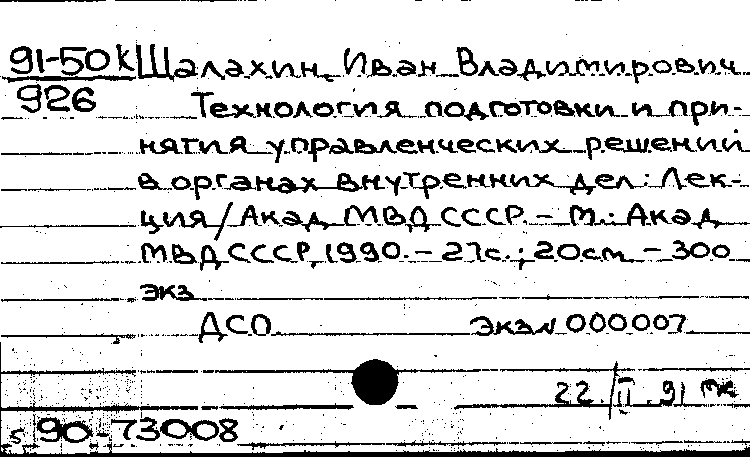 91-50к Шалахин, Иван Владимирович
926 Технология подготовки и при-
нятия управленческих решений
в органах внутренних дел: Лек-
ция/Акад. МВД СССР. - М.: Акад.
МВД СССР, 1990. - 27с.; 20см. - 300
экз
ДСП. Экз№ 000007
22/II.91
s 90-73008